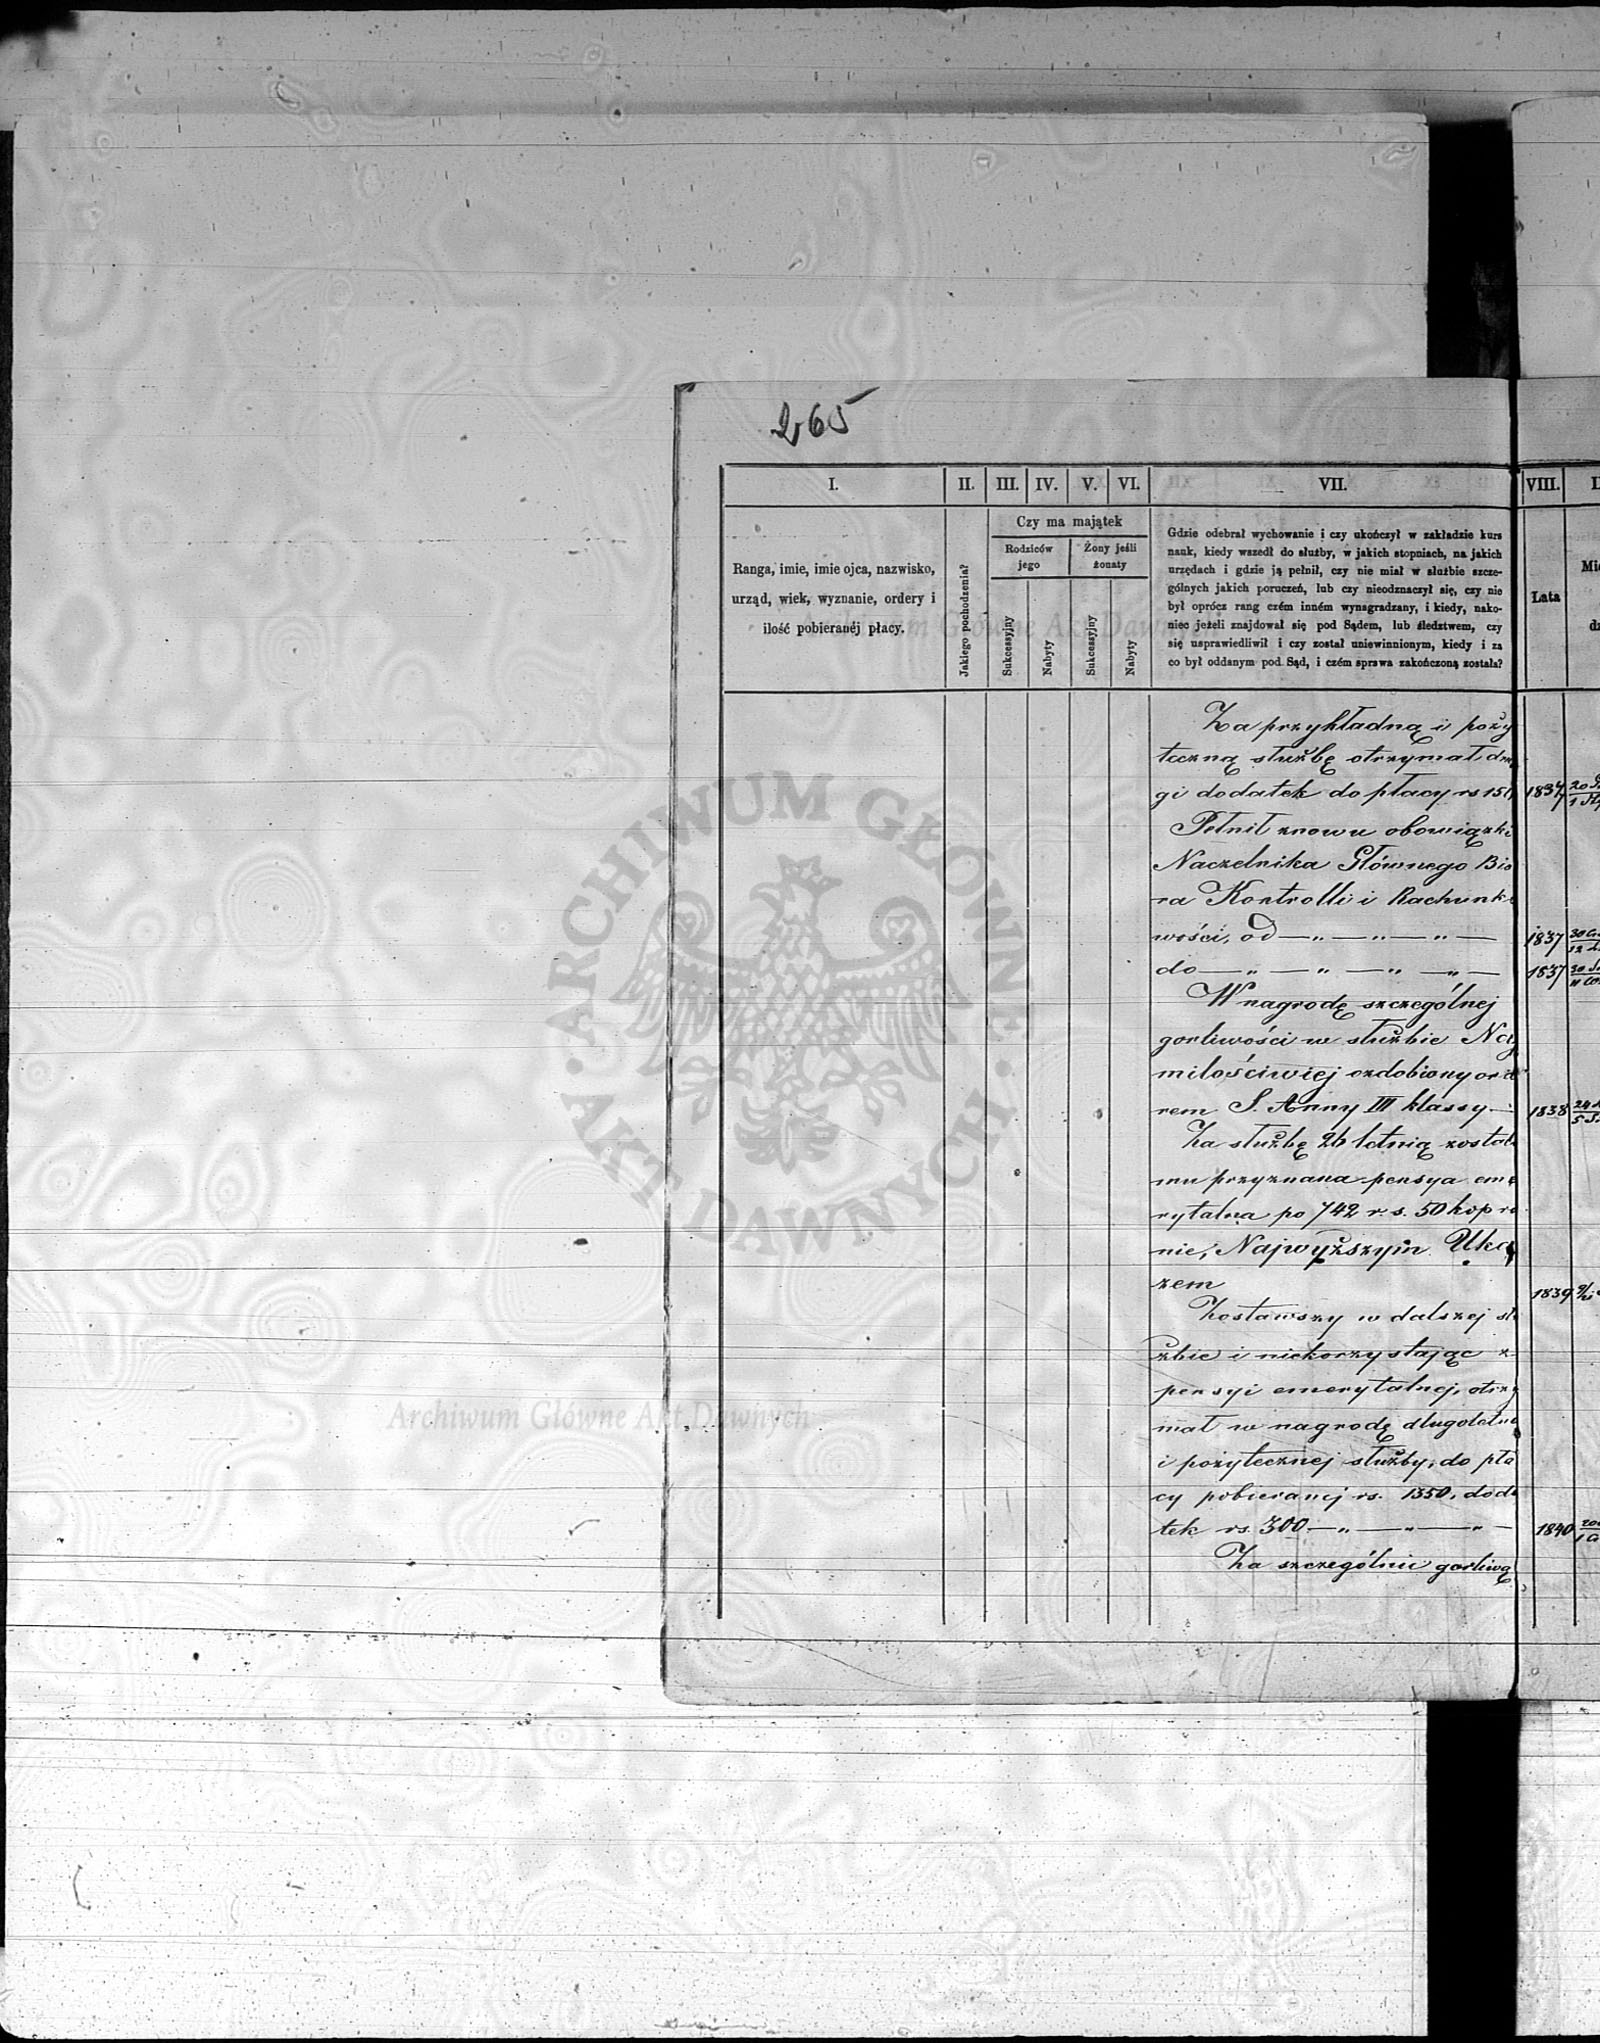 265
I. II. III. IV. V. VI. VII. VIII.
Ranga, imie, imie ojca, nazwisko,
urząd, wiek, wyznanie, ordery i
ilość pobieranéj płacy.
Jakiego pochodzenia?
Czy ma majątek
Rodziców
jego
Żony jeśli
żonaty
Sukcessyjny
Nabyty
Sukcessyjny
Nabyty
Gdzie odebrał wychowanie i czy ukończył w zakładzie kurs
nauk, kiedy wszedł do służby, w jakich stopniach, na jakich
urzędach i gdzie ją pełnił, czy nie miał w służbie szcze-
gólnych jakich poruczeń, lub czy nieodznaczył się, czy nie
był oprócz rang czém inném wynagradzany, i kiedy, nako-
niec jeżeli znajdował się pod Sądem, lub śledztwem, czy
się usprawiedliwił i czy został uniewinnionym, kiedy i za
co był oddanym pod Sąd, i czém sprawa zakończoną została?
Lata
Za przykładną i poży
teczną służbę otrzymał dru
gi dodatek do płacy rs 150 1837
Pełnił znowu obowiązki
Naczelnika Głównego Biu
ra Kontrolli i Rachunko
wości, od — „ — „ — „ — 1837
do — „ — „ — „ — „ — 1837
W nagrodę szczególnej
gorliwości w służbie Naj
miłościwiej ozdobiony orde
rem S. Anny III klassy — 1838
Za służbę 26 letnią została
mu przyznana pensya eme
rytalna po 742 r. s. 50 kop ro
nie, Najwyższym Uka
zem 1839
Zostawszy w dalszej słu
żbie i niekorzystając z
pensyi emerytalnej, otrzy
mał w nagrodę długoletni
i pożytecznej służby, do pła
cy pobieranej rs. 1350, doda
tek rs. 300 — „ — „ — „ — 1840
Za szczególnie gorliwą
ARCHIWUM GŁÓWNE
· AKT DAWNYCH ·
Archiwum Główne Akt Dawnych